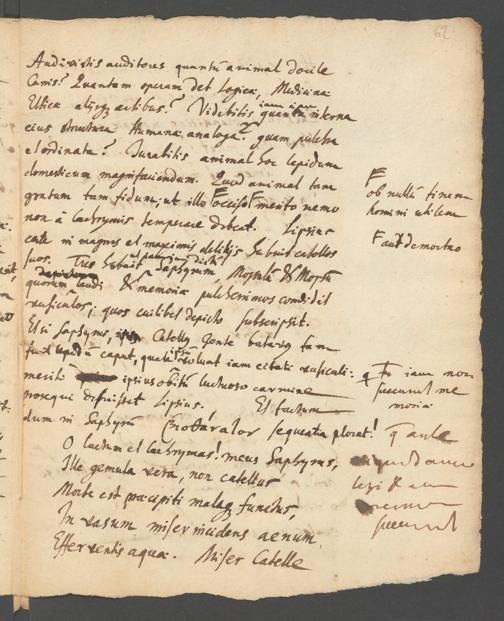 62
Audivistis auditores quantũ animal docile
Canis? Quantam operam det Logicæ, Medicinæ
Ethicæ aliisq; artibus? Videbitis iam quam interna
eius structura humanæ analoga? quam pulchra
et ordinata? Iurabitis animal hoc lepidum
domesticum magnifaciendum. Quod animal tam
gratum tam fidum, ut illo F occiso F merito nemo
non à lachrymis temperare debeat. Lipsius
certe in magnis et maximis delitijs habuit catellos
suos. Tres habuit Saphyrum, Mopsulũ & Mopsũ
quorum laudi & memoriæ pulcherrimos condidit
versiculos; quos cuilibet depicto subscripsit.
Et si Saphyrus, Catellus gente batavus
caput, iam citati versiculi:
meriti ipsius obitũ luctuoso carmine
Lipsius. Et
dum in Saphyrũ sequentia plorat!
O luctum et lachrymas! meus Saphyrus,
Ille gemula vera, non catellus
Morte est præcipiti malaq; functus,
In vasum miser incidens aenum
Efferventis aquæ. Miser Catelle
F
ob nullũ finem
homini utilem
F aut demortuo
q Tu iam non
succurrit me
moria
q ante
legi
succurrit